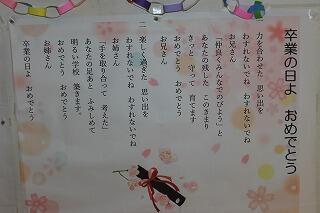 卒業の日よ　おめでとう
力を合わせた　思い出を
わすれないでね　わすれないでね
お兄さん
「仲良くみんなでのびよう」と
あなたの残した　このきまり
きっと　守って　育てます
おめでとう　おめでとう
お兄さん
二　楽しく過ぎた　思い出を
わすれないでね　わすれないでね
お姉さん
「手を取り合って　考えた」
あなたの足あと　ふみしめて
明るい学校　築きます。
おめでとう　おめでとう
お姉さん
卒業の日よ　おめでとう